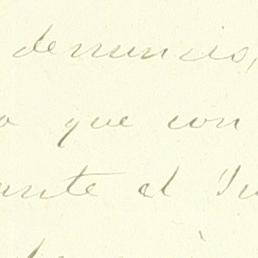 denuncio,
o que con
ante el Ju